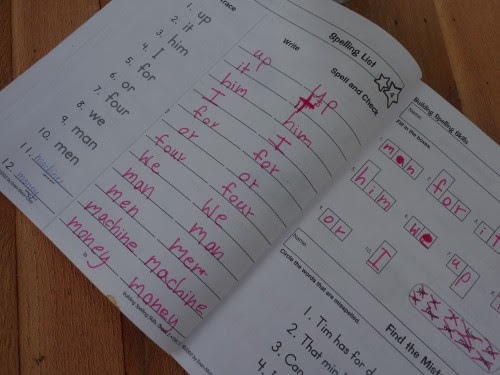 Trace
Write
Spelling List
Spell and Check
1. up up up
2. it it it
3. him him him
4. I I I
5. for for for
6. or or or
7. four four four
8. we we we
9. man man man
10. men men men
11. machine machine
12. money money money
Building Spelling Skills
Name
Fill in the boxes.
man for it
him we up
or I
Name
Circle the words that are misspelled.
Find the Mist
1. Tim has for d
2. That min
3. Can
4. I